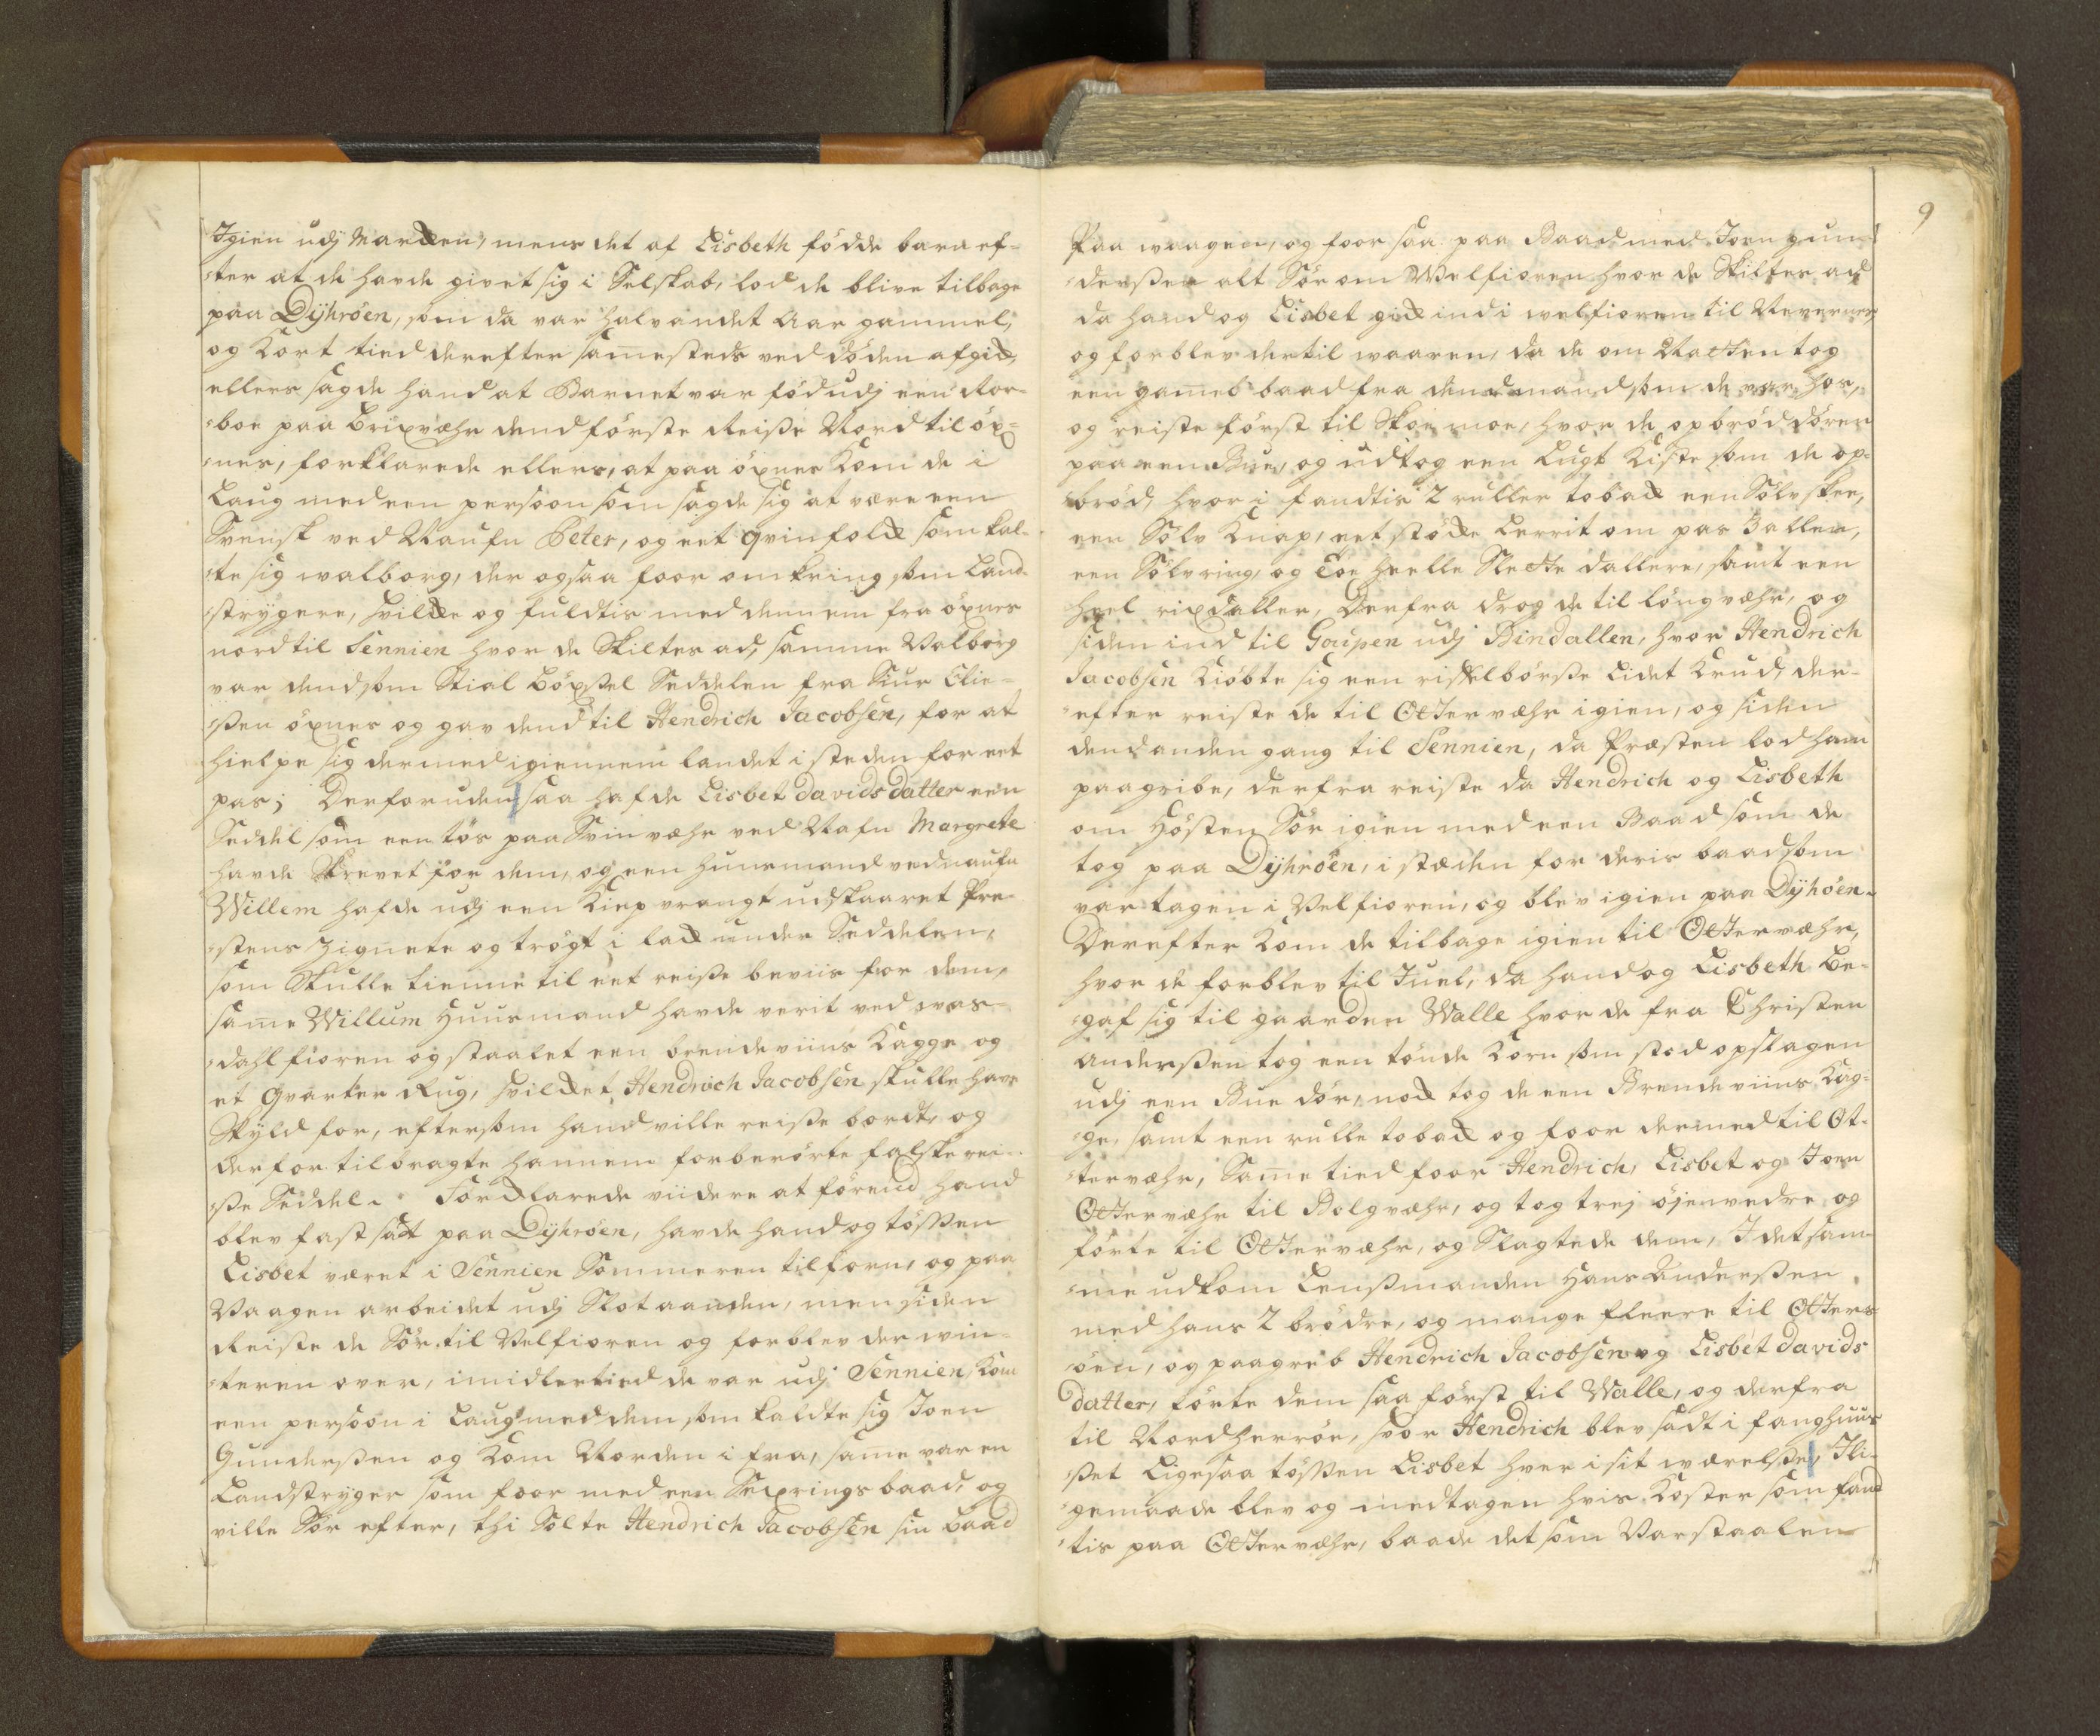 Igien udj Marcken, mens det af Lisbeth födde barn ef-
-ter at de havde givet sig i Selskab, lod de blive tilbage
paa Dÿhröen, som da var halvandet Aar gammel,
og Kort tied derefter samesteds ved döden afgick,
ellers sagde hand at Barnet var föd udj een Roer-
-boe paa Brixvæhr dend förste Reise Nord til öx-
-nes, forklarede ellers, at paa öxnes Kom de i
Laug med een persoon som sagde sig at være een
Svensk ved Naufn Peter, og eet qvinfolck som kal-
-te sig walborg, der ogsaa foor omkring som Land-
-strÿgere, hvilcke og fuldtis med dennem fra öxnes
nord til Sennien hvor de Skiltes ad, samme Valborg
var dend som Stial böxsel Seddelen fra Siur Elie-
-ssen öxnes og gav dend til Hendrich Jacobsen, for at
hielpe sig dermed igiennem landet i steden for eet
pas; Derforuden saa hafde Lisbet davids datter een
Seddel som een tös paa Svinvæhr ved Nafn Margrete
havde Skrevet for dem, og een Huusmand ved naufn
Willem hafde udj een Kiep vrangt udskaaret Pre-
-stens Zignete og trögt i lack under Seddelen,
som Skulle tienne til eet reise beviis for dem,
same Willum Huusmand havde verit ved vas-
-dahl fioren og staalet een brendeviins Kagge og
et qvarter Rug, hvilcket Hendrich Jacobsen skulle have
Skÿld for, eftersom hand ville reise bordt, og
derfor tilbragte hannem forberörte falske rei-
-sse Seddel. Forcklarede viidere at förend hand
blev fast sadt paa Dÿhröen, havde hand og tössen
Lisbet været i Sennien Sommeren tilforn, og paa
Vaagen arbeidet udj Slotaanden, men siden
Reiste de Sör til Velfioren og forblev der win-
-teren over, imidlertied de var udj Sennien, Kom
een persoon i Laug med dem som kaldte sig Joen
Gunderssen og Kom Norden i fra, same var en
Landstrÿger som foor med een Sexrings baad, og
ville Sör efter, thi Solte Hendrich Jacobsen sin baad
9
Paa waagen, og foor saa paa Baad med Joen gun-
-derssen alt Sör om Welfioren hvor de Skiltes ad
da hand og Lisbet gick ind i welfioren til Nevernes
og forblev der til waaren, da de om Natten tog
een gamel baad fra dend mand som de var hos,
og reiste först til Skoe moe, hvor de opbröd dören
paa een Bue, og udtog een Lugt Kiste som de op-
-bröd, hvor i fandtis 2 ruller toback een Sölv skee,
een Sölv Knap, eet stöcke Lerrit om pas 3 allen,
een Sölvring, og Toe heelle Slette dallere, samt een
heel rixdaller, Derfra drog de til löngvæhr, og
siden ind til Gaupen udj Bindallen, hvor Hendrich
Jacobsen Kiöbte sig een riffelbörsse Lidet Krud, der-
-efter reiste de til Ottervæhr igien, og siden
dend anden gang til Sennien, da Præsten lod ham
paagribe, derfra reiste da Hendrich og Lisbeth
om Hösten Sör igien med een Baad som de
tog paa Dÿhröen, i stæden for deris baad som
var tagen i Velfioren, og blev igien paa Dÿhöen.
Derefter Kom de tilbage igien til Ottervæhr,
hvor de forblev til Juel, da hand og Lisbeth be-
-gaf sig til gaarden Walle hvor de fra Christen
Anderssen tog een tönde Korn som stod opslagen
udj een Bue dör, nock tog de een Brendeviins Kag-
-ge, samt een rulle toback og foor dermed til Ot-
-tervæhr, Same tied foor Hendrich, Lisbet og Joen
Ottervæhr til Bolgvæhr, og tog trej öjenvedre og
förte til Ottervæhr, og Slagtede dem, I det sam-
-me udkom Lenssmanden Hans Anderssen
med hans 2 brödre, og mange fleere til Otters-
-öen, og paagreb Hendrich Jacobsen og Lisbet davids
datter, förte dem saa först til Walle, og derfra
til Nordherröe, hvor Hendrich blev sadt i fanghuu-
-sset Ligesaa tössen Lisbet hver i sit wærelsse, Ili-
-gemaade blev og medtagen hvis Koster som fand-
-tis paa Ottervæhr, baade det som Var staalen